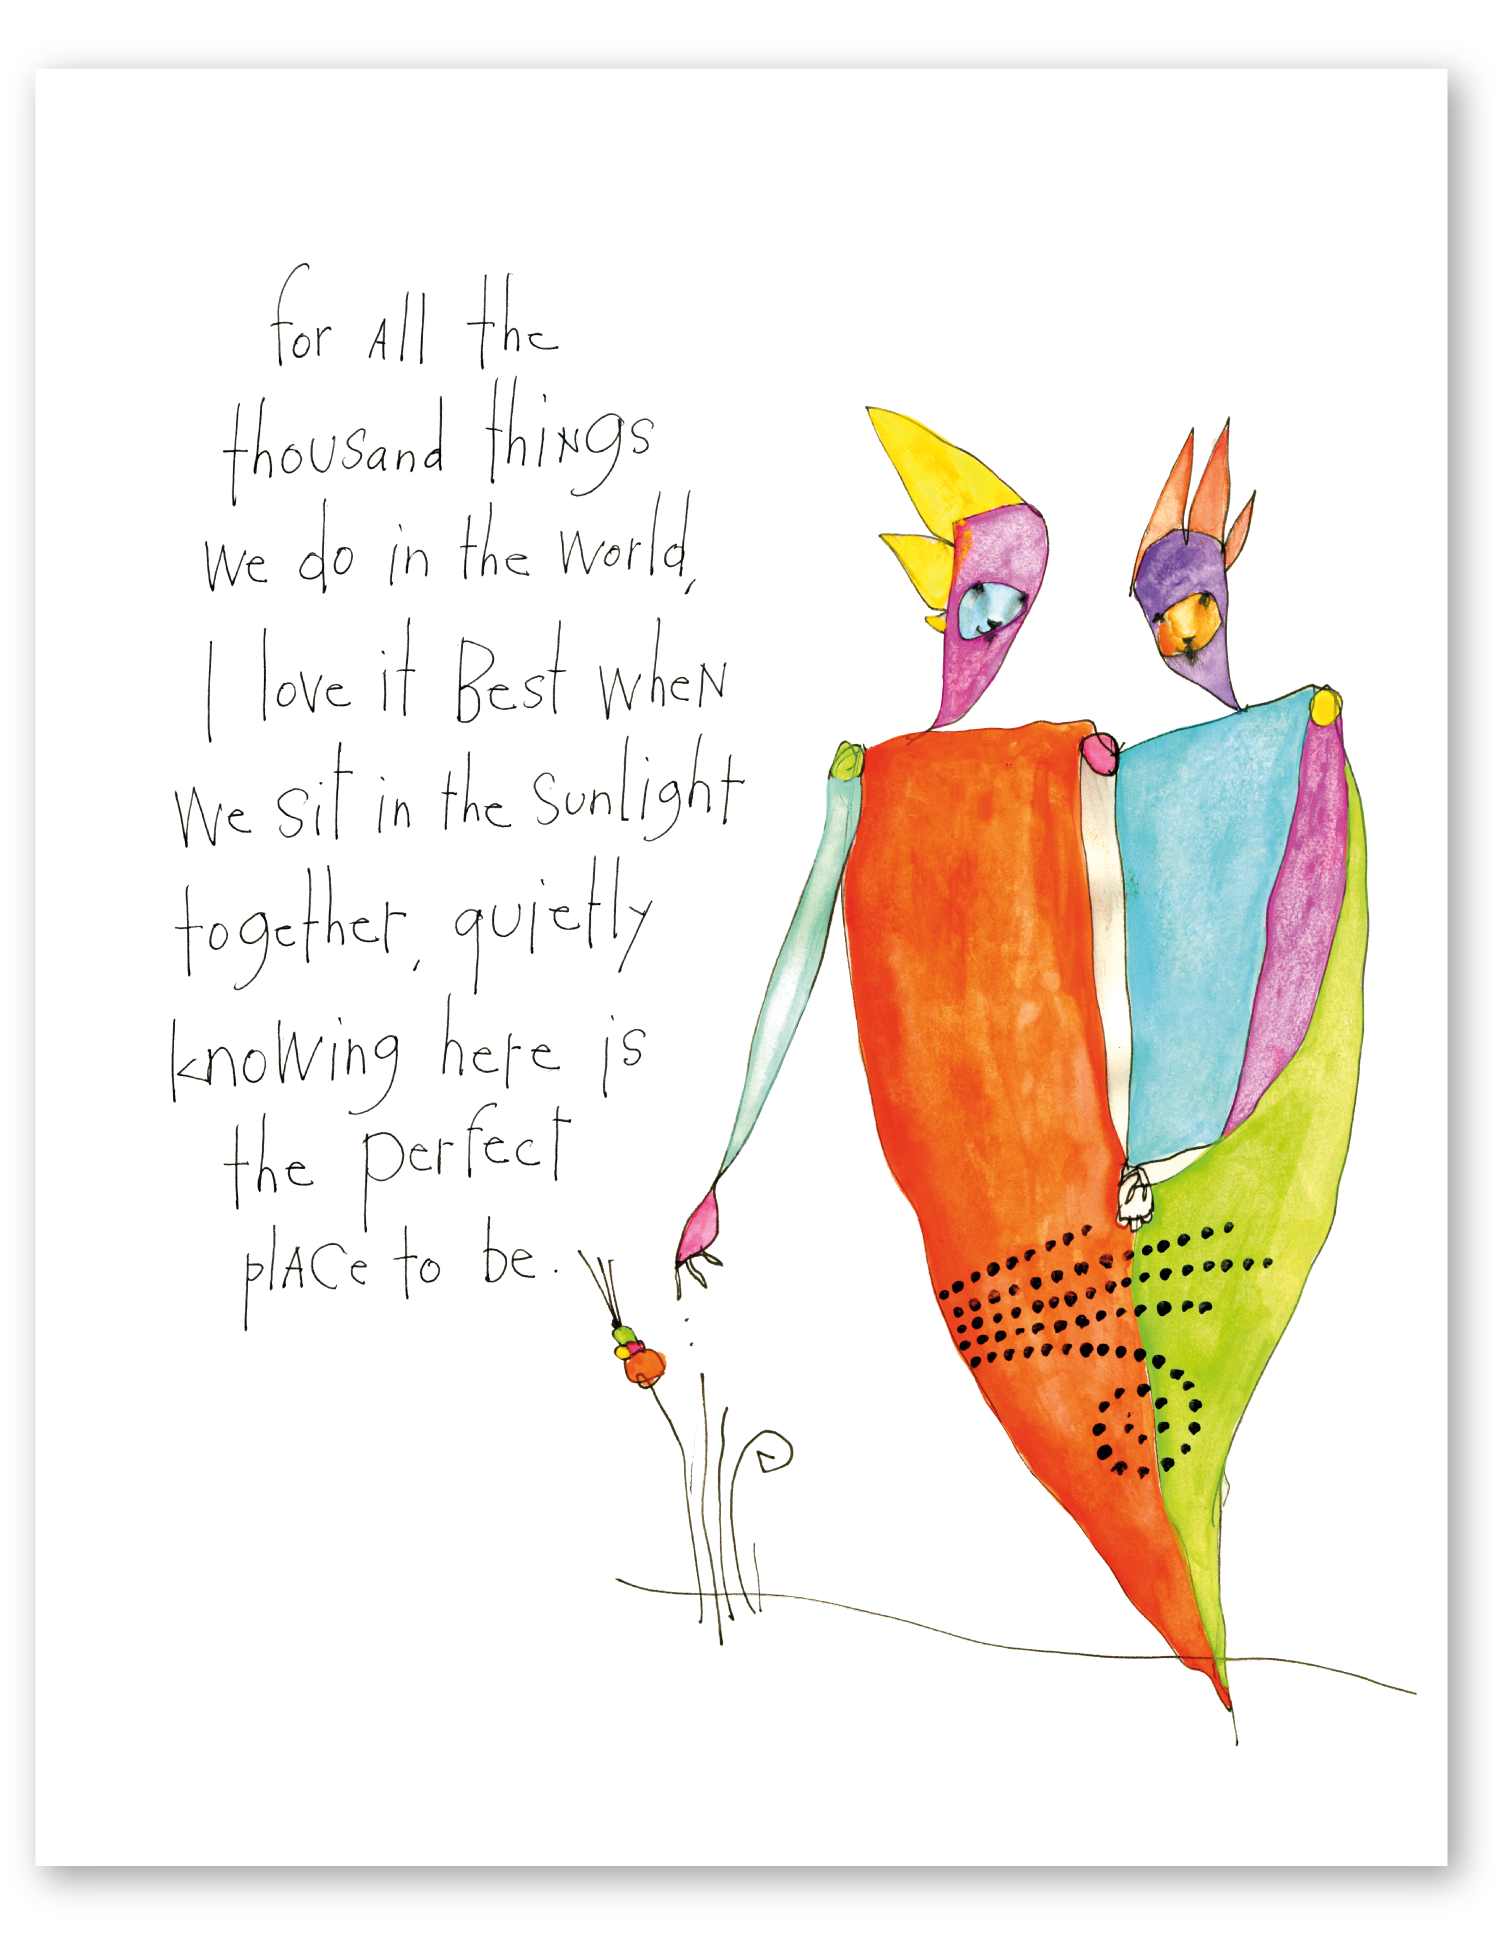 for all the
thousand things
we do in the world,
I love it Best when
we sit in the sunlight
together, quietly
knowing here is
the perfect
place to be.